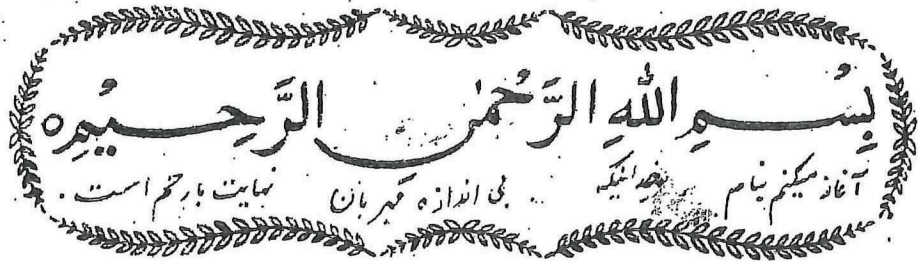 بِسْمِ اللّٰهِ الرَّحْمٰنِ الرَّحِيْمِ ه
آغاز میکنم بنام خدائیکه بی اندازه مهربان نهایت بارحم است.